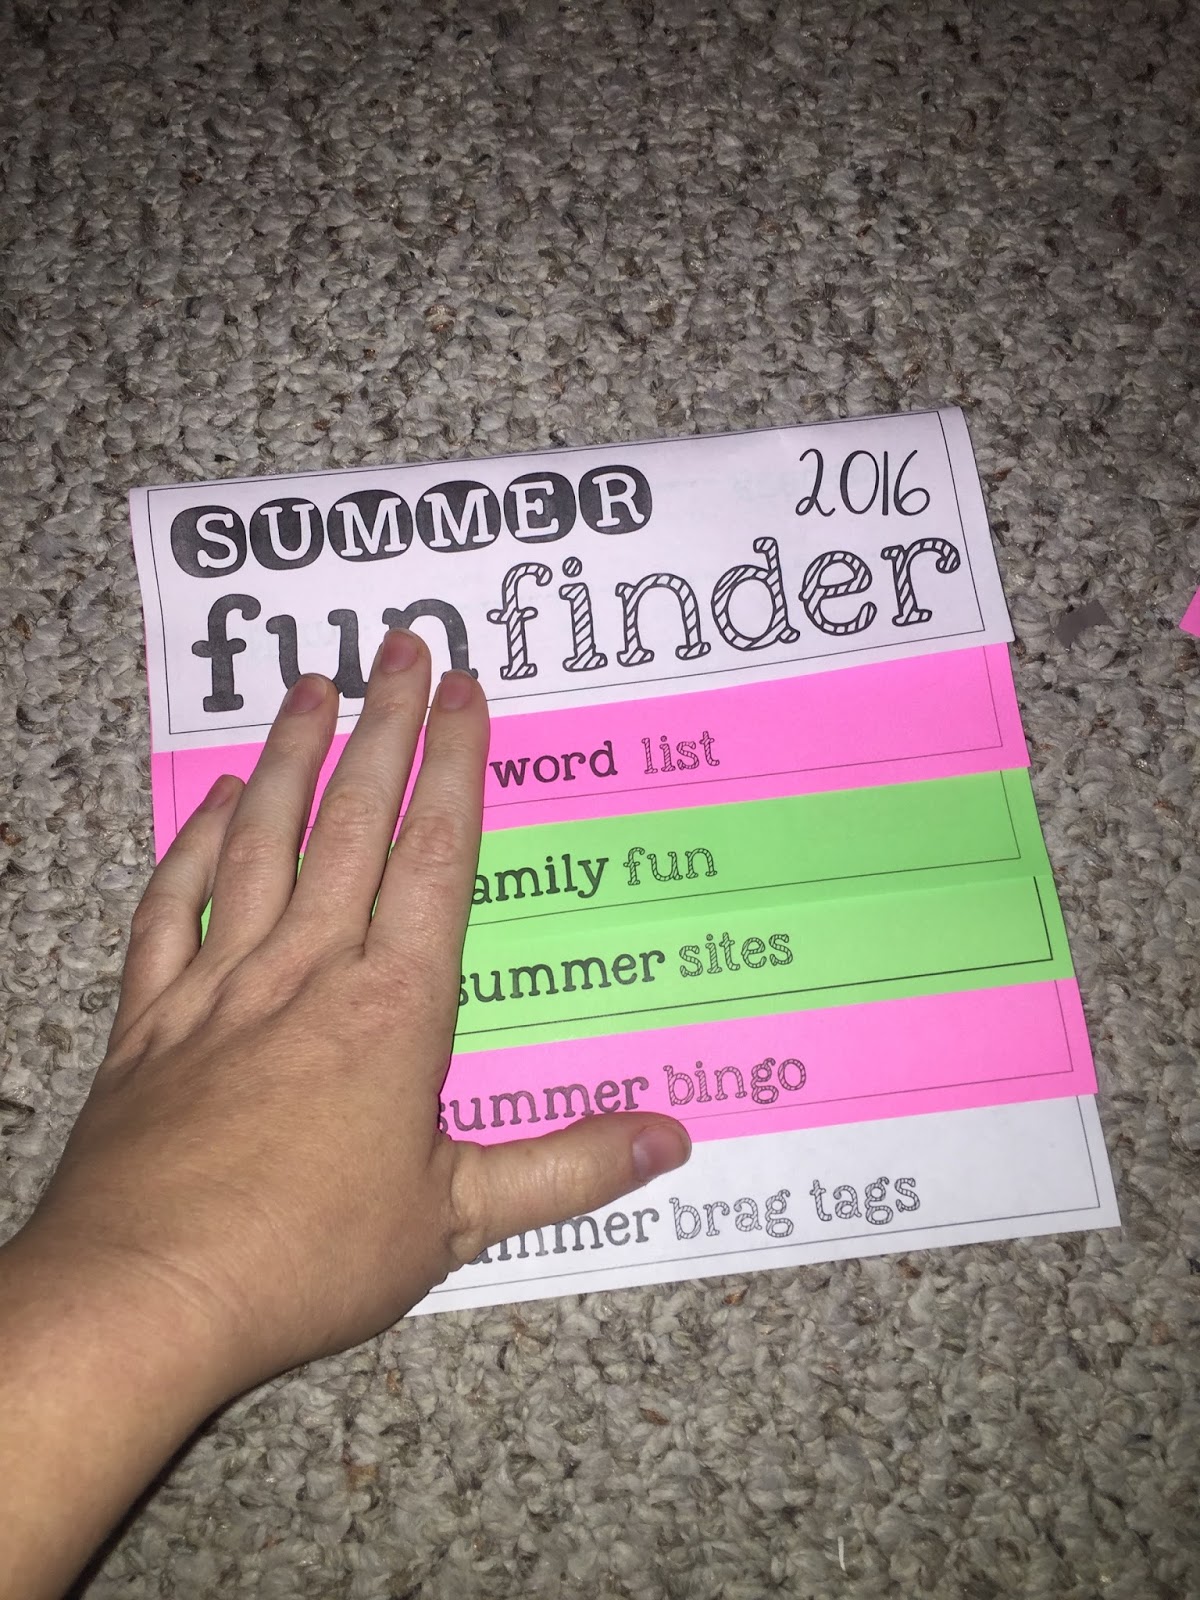 SUMMER 2016
fun finder
word list
amily fun
summer sites
summer bingo
ummer brag tags